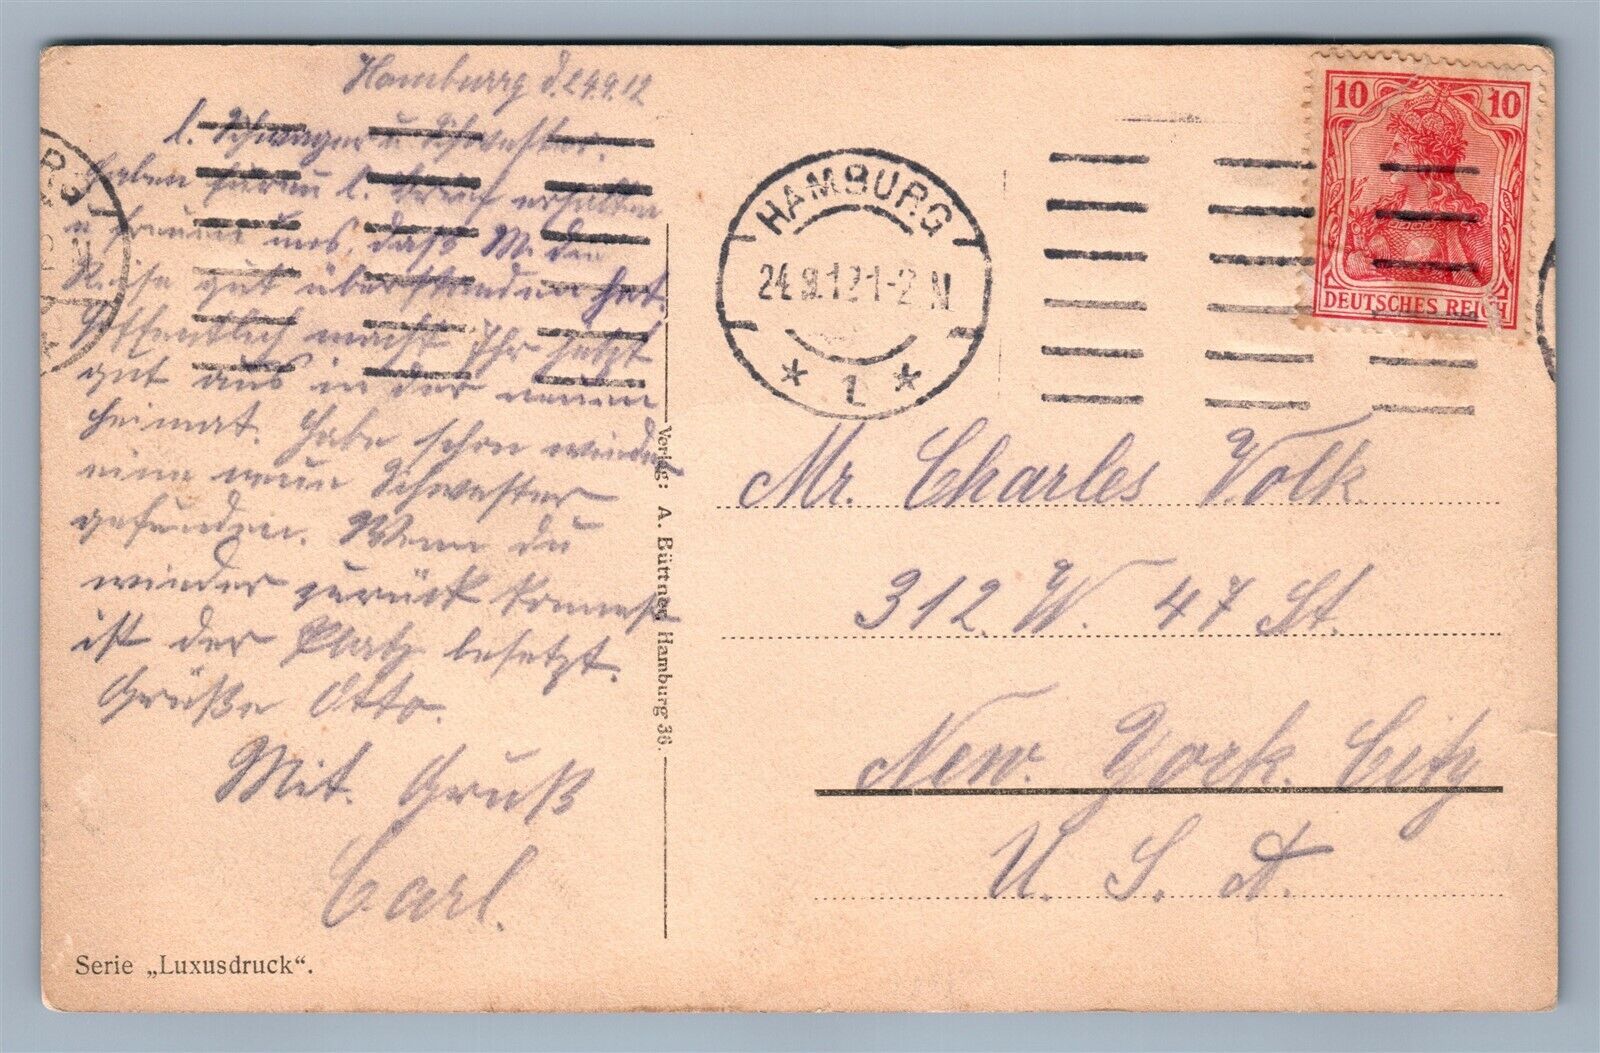 Hamburg d. 24.9.12
l. Schwager u Schwester.
Haben Eueren l. Brief erhalten
u freuen uns, daß M. die
Reise gut überstanden hat.
Hoffentlich macht Ihr jetzt
gut aus in der neuen
Heimat. Habe schon wieder
eine neue Schwester
gefunden. Wenn du
wieder zurück kommst
ist der Platz besetzt.
Grüße Otto.
Mit. Gruß
Carl.
Serie „Luxusdruck“.
Verlag: A. Büttner Hamburg 36.
HAMBURG
24.9.12 1-2 N
* 1 *
10 10
DEUTSCHES REICH
Mr. Charles Volk.
312. W. 47 St.
New. York. City
U. S. A.